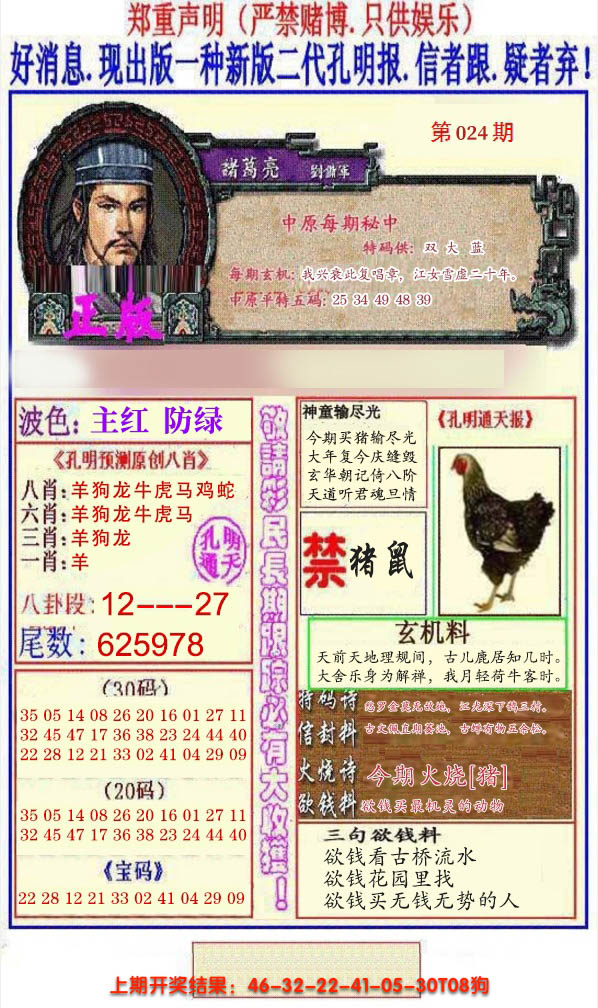 郑重声明（严禁赌博.只供娱乐）
好消息.现出版一种新版二代孔明报.信者跟.疑者弃！
第024期
諸葛亮 劉備軍
中原每期秘中
特码供：双 大 蓝
每期玄机：我兴衰此复唱章，江女雪虚二十年。
中原平特五码：25 34 49 48 39
正版
波色：主红 防绿
《孔明预测原创八肖》
八肖：羊狗龙牛虎马鸡蛇
六肖：羊狗龙牛虎马
三肖：羊狗龙
一肖：羊
孔明通天
八卦段：12---27
尾数：625978
（30码）
35 05 14 08 26 20 16 01 27 11
32 45 47 17 36 38 23 24 44 40
22 28 12 21 33 02 41 04 29 09
（20码）
35 05 14 08 26 20 16 01 27 11
32 45 47 17 36 38 23 24 44 40
《宝码》
22 28 12 21 33 02 41 04 29 09
敬請彩民長期跟踪必有大收獲！
神童输尽光
今期买猪输尽光
大年复今庆缝毁
玄华朝记倚八阶
天道听君魂旦情
《孔明通天报》
禁猪鼠
玄机料
天前天地理规间，古儿鹿居知几时。
大舍乐身为解禅，我月轻荷牛客时。
特码诗
信封料
火烧诗 今期火烧[猪]
欲钱料 欲钱买最机灵的动物
三句欲钱料
欲钱看古桥流水
欲钱花园里找
欲钱买无钱无势的人
上期开奖结果：46-32-22-41-05-30T08狗